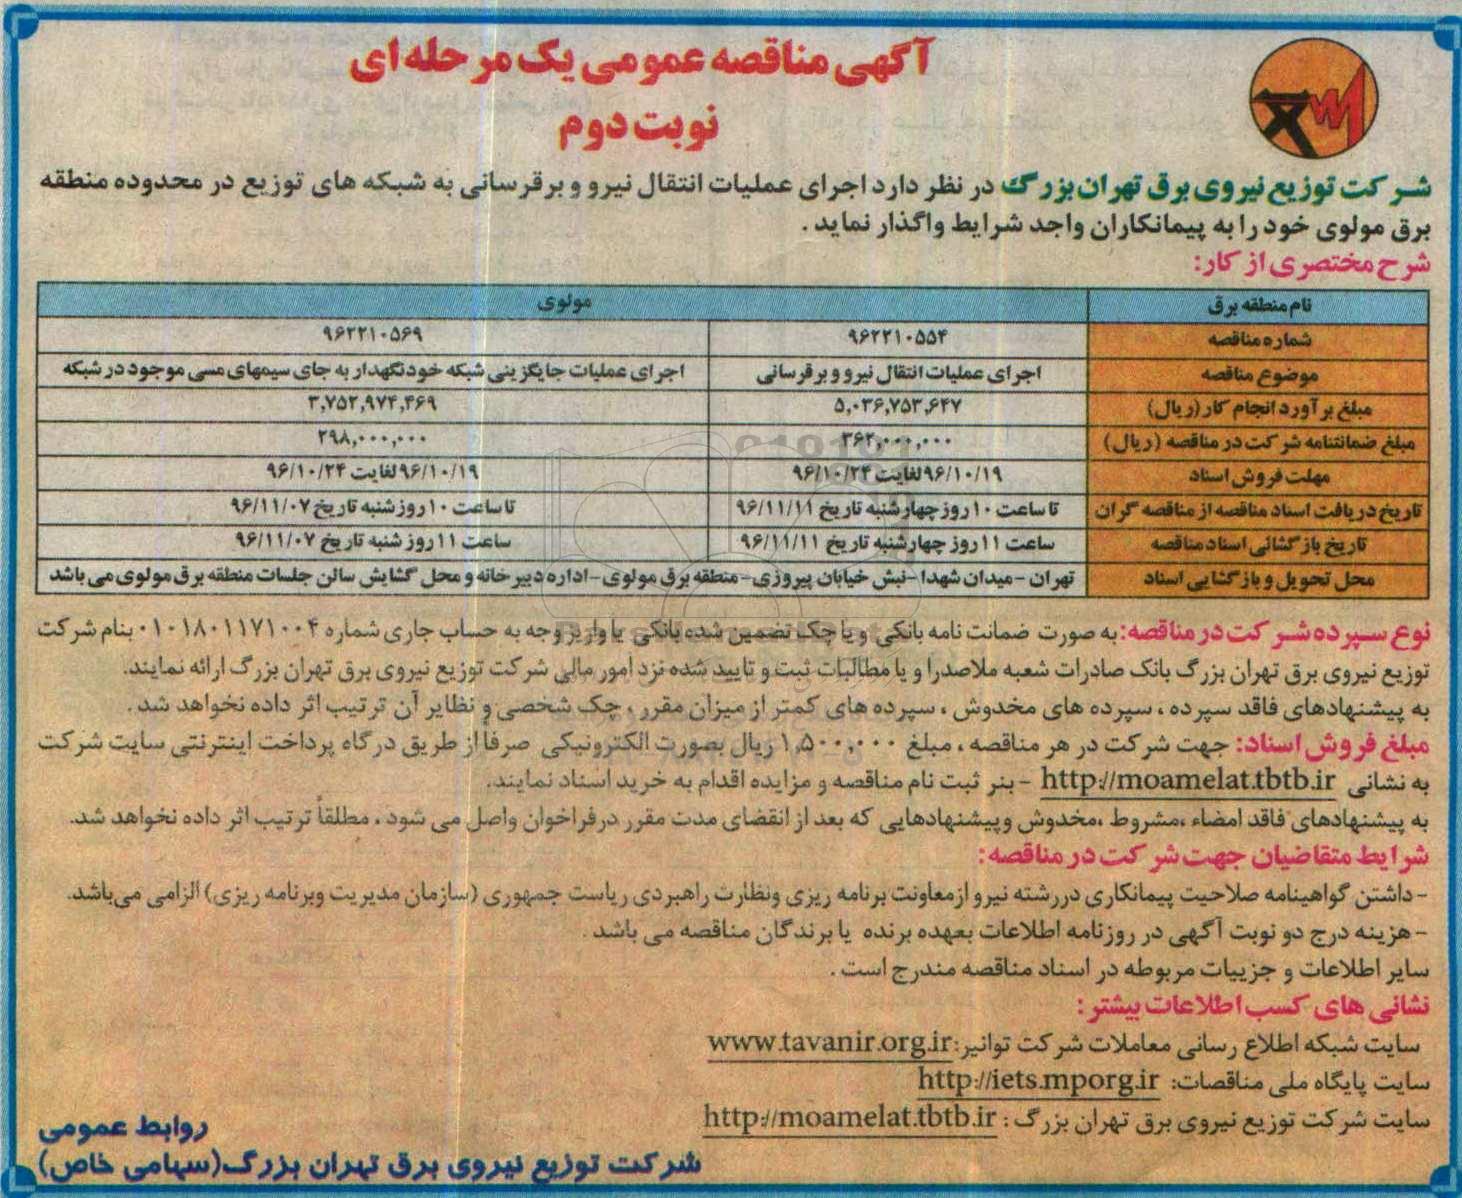 آگهی مناقصه عمومی یک مرحله ای
نوبت دوم
شرکت توزیع نیروی برق تهران بزرگ در نظر دارد اجرای عملیات انتقال نیرو و برقرسانی به شبکه های توزیع در محدوده منطقه
برق مولوی خود را به پیمانکاران واجد شرایط واگذار نماید .
شرح مختصری از کار:
نام منطقه برق مولوی
شماره مناقصه ۹۶۲۲۱۰۵۵۴ ۹۶۲۲۱۰۵۶۹
موضوع مناقصه اجرای عملیات انتقال نیرو و برقرسانی اجرای عملیات جایگزینی شبکه خودنگهدار به جای سیمهای مسی موجود در شبکه
مبلغ برآورد انجام کار (ریال) ۵,۰۳۶,۷۵۳,۶۴۷ ۳,۷۵۲,۹۷۴,۴۶۹
مبلغ ضمانتنامه شرکت در مناقصه (ریال) ۳۶۲,۰۰۰,۰۰۰ ۲۹۸,۰۰۰,۰۰۰
مهلت فروش اسناد ۹۶/۱۰/۱۹ لغایت ۹۶/۱۰/۲۴ ۹۶/۱۰/۱۹ لغایت ۹۶/۱۰/۲۴
تاریخ دریافت اسناد مناقصه از مناقصه گران تا ساعت ۱۰ روز چهارشنبه تاریخ ۹۶/۱۱/۱۱ تا ساعت ۱۰ روز شنبه تاریخ ۹۶/۱۱/۰۷
تاریخ بازگشائی اسناد مناقصه ساعت ۱۱ روز چهارشنبه تاریخ ۹۶/۱۱/۱۱ ساعت ۱۱ روز شنبه تاریخ ۹۶/۱۱/۰۷
محل تحویل و بازگشایی اسناد تهران -میدان شهدا -نبش خیابان پیروزی- منطقه برق مولوی -اداره دبیرخانه و محل گشایش سالن جلسات منطقه برق مولوی می باشد
نوع سپرده شرکت در مناقصه: به صورت ضمانت نامه بانکی و یا چک تضمین شده بانکی یا واریز وجه به حساب جاری شماره ۰۱۰۱۸۰۱۱۷۱۰۰۴ بنام شرکت
توزیع نیروی برق تهران بزرگ بانک صادرات شعبه ملاصدرا و یا مطالبات ثبت و تایید شده نزد امور مالی شرکت توزیع نیروی برق تهران بزرگ ارائه نمایند.
به پیشنهادهای فاقد سپرده ، سپرده های مخدوش ، سپرده های کمتر از میزان مقرر ، چک شخصی و نظایر آن ترتیب اثر داده نخواهد شد .
مبلغ فروش اسناد: جهت شرکت در هر مناقصه ، مبلغ ۱,۵۰۰,۰۰۰ ریال بصورت الکترونیکی صرفا از طریق درگاه پرداخت اینترنتی سایت شرکت
به نشانی http://moamelat.tbtb.ir - بنر ثبت نام مناقصه و مزایده اقدام به خرید اسناد نمایند.
به پیشنهادهای فاقد امضاء ،مشروط ،مخدوش وپیشنهادهایی که بعد از انقضای مدت مقرر درفراخوان واصل می شود ، مطلقاً ترتیب اثر داده نخواهد شد.
شرایط متقاضیان جهت شرکت در مناقصه:
- داشتن گواهینامه صلاحیت پیمانکاری دررشته نیرو ازمعاونت برنامه ریزی ونظارت راهبردی ریاست جمهوری (سازمان مدیریت وبرنامه ریزی) الزامی می‌باشد.
- هزینه درج دو نوبت آگهی در روزنامه اطلاعات بعهده برنده یا برندگان مناقصه می باشد .
سایر اطلاعات و جزییات مربوطه در اسناد مناقصه مندرج است .
نشانی های کسب اطلاعات بیشتر :
سایت شبکه اطلاع رسانی معاملات شرکت توانیر: www.tavanir.org.ir
سایت پایگاه ملی مناقصات: http://iets.mporg.ir
سایت شرکت توزیع نیروی برق تهران بزرگ : http://moamelat.tbtb.ir
روابط عمومی
شرکت توزیع نیروی برق تهران بزرگ(سهامی خاص)